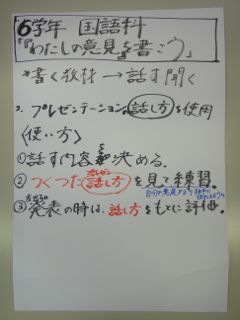 6学年 国語科
「わたしの意見を書こう」
*書く教材→話す聞く
2. プレゼンテーション 話し方を使用
〈使い方〉
①話す内容を決める。
②つくった話し方を見て練習。
③発表の時は、話し方をもとに評価。